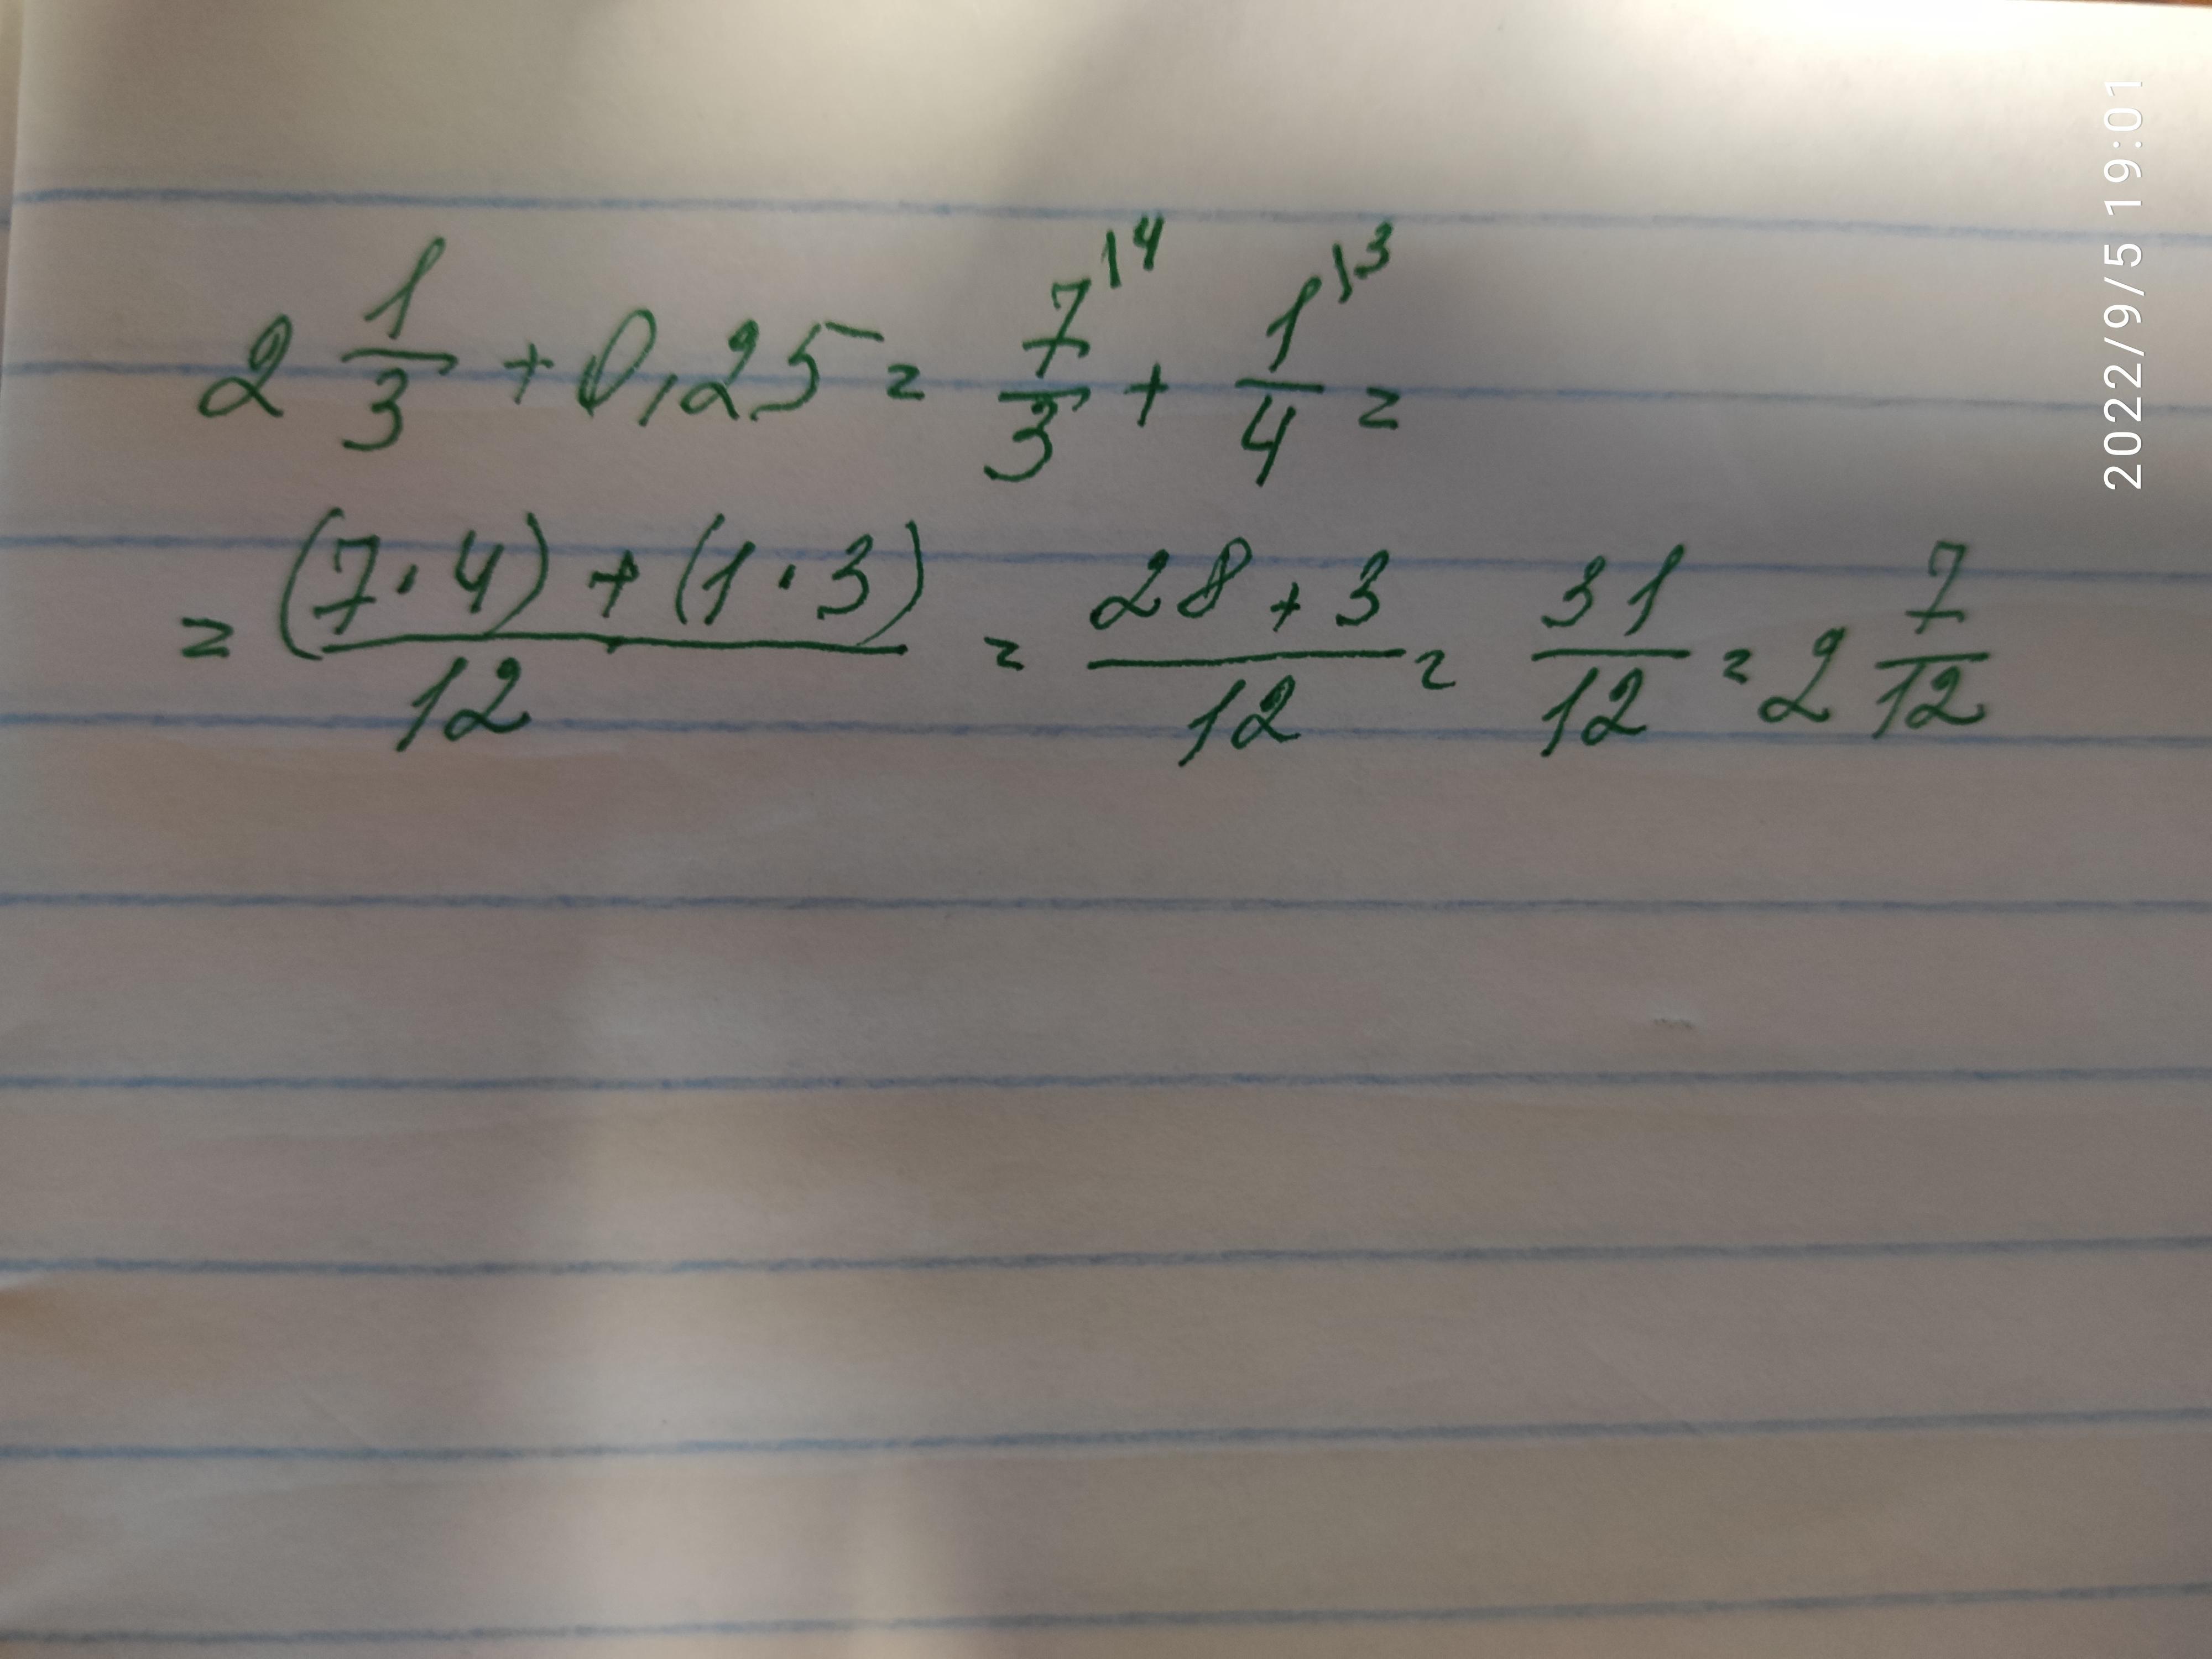 2 1/3 + 0,25 = 7/3 \4 + 1/4 \3 =
= (7·4) + (1·3) / 12 = 28 + 3 / 12 = 31/12 = 2 7/12
2022/9/5 19:01